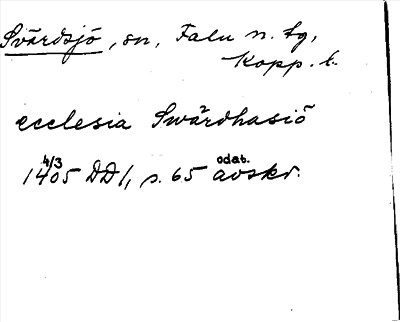 Svärdsjö, sn, Falu n. tg,
Kopp. l.
ecclesia Swärdhasiö
4/3 odat.
1405 DD1, s. 65 avskr.